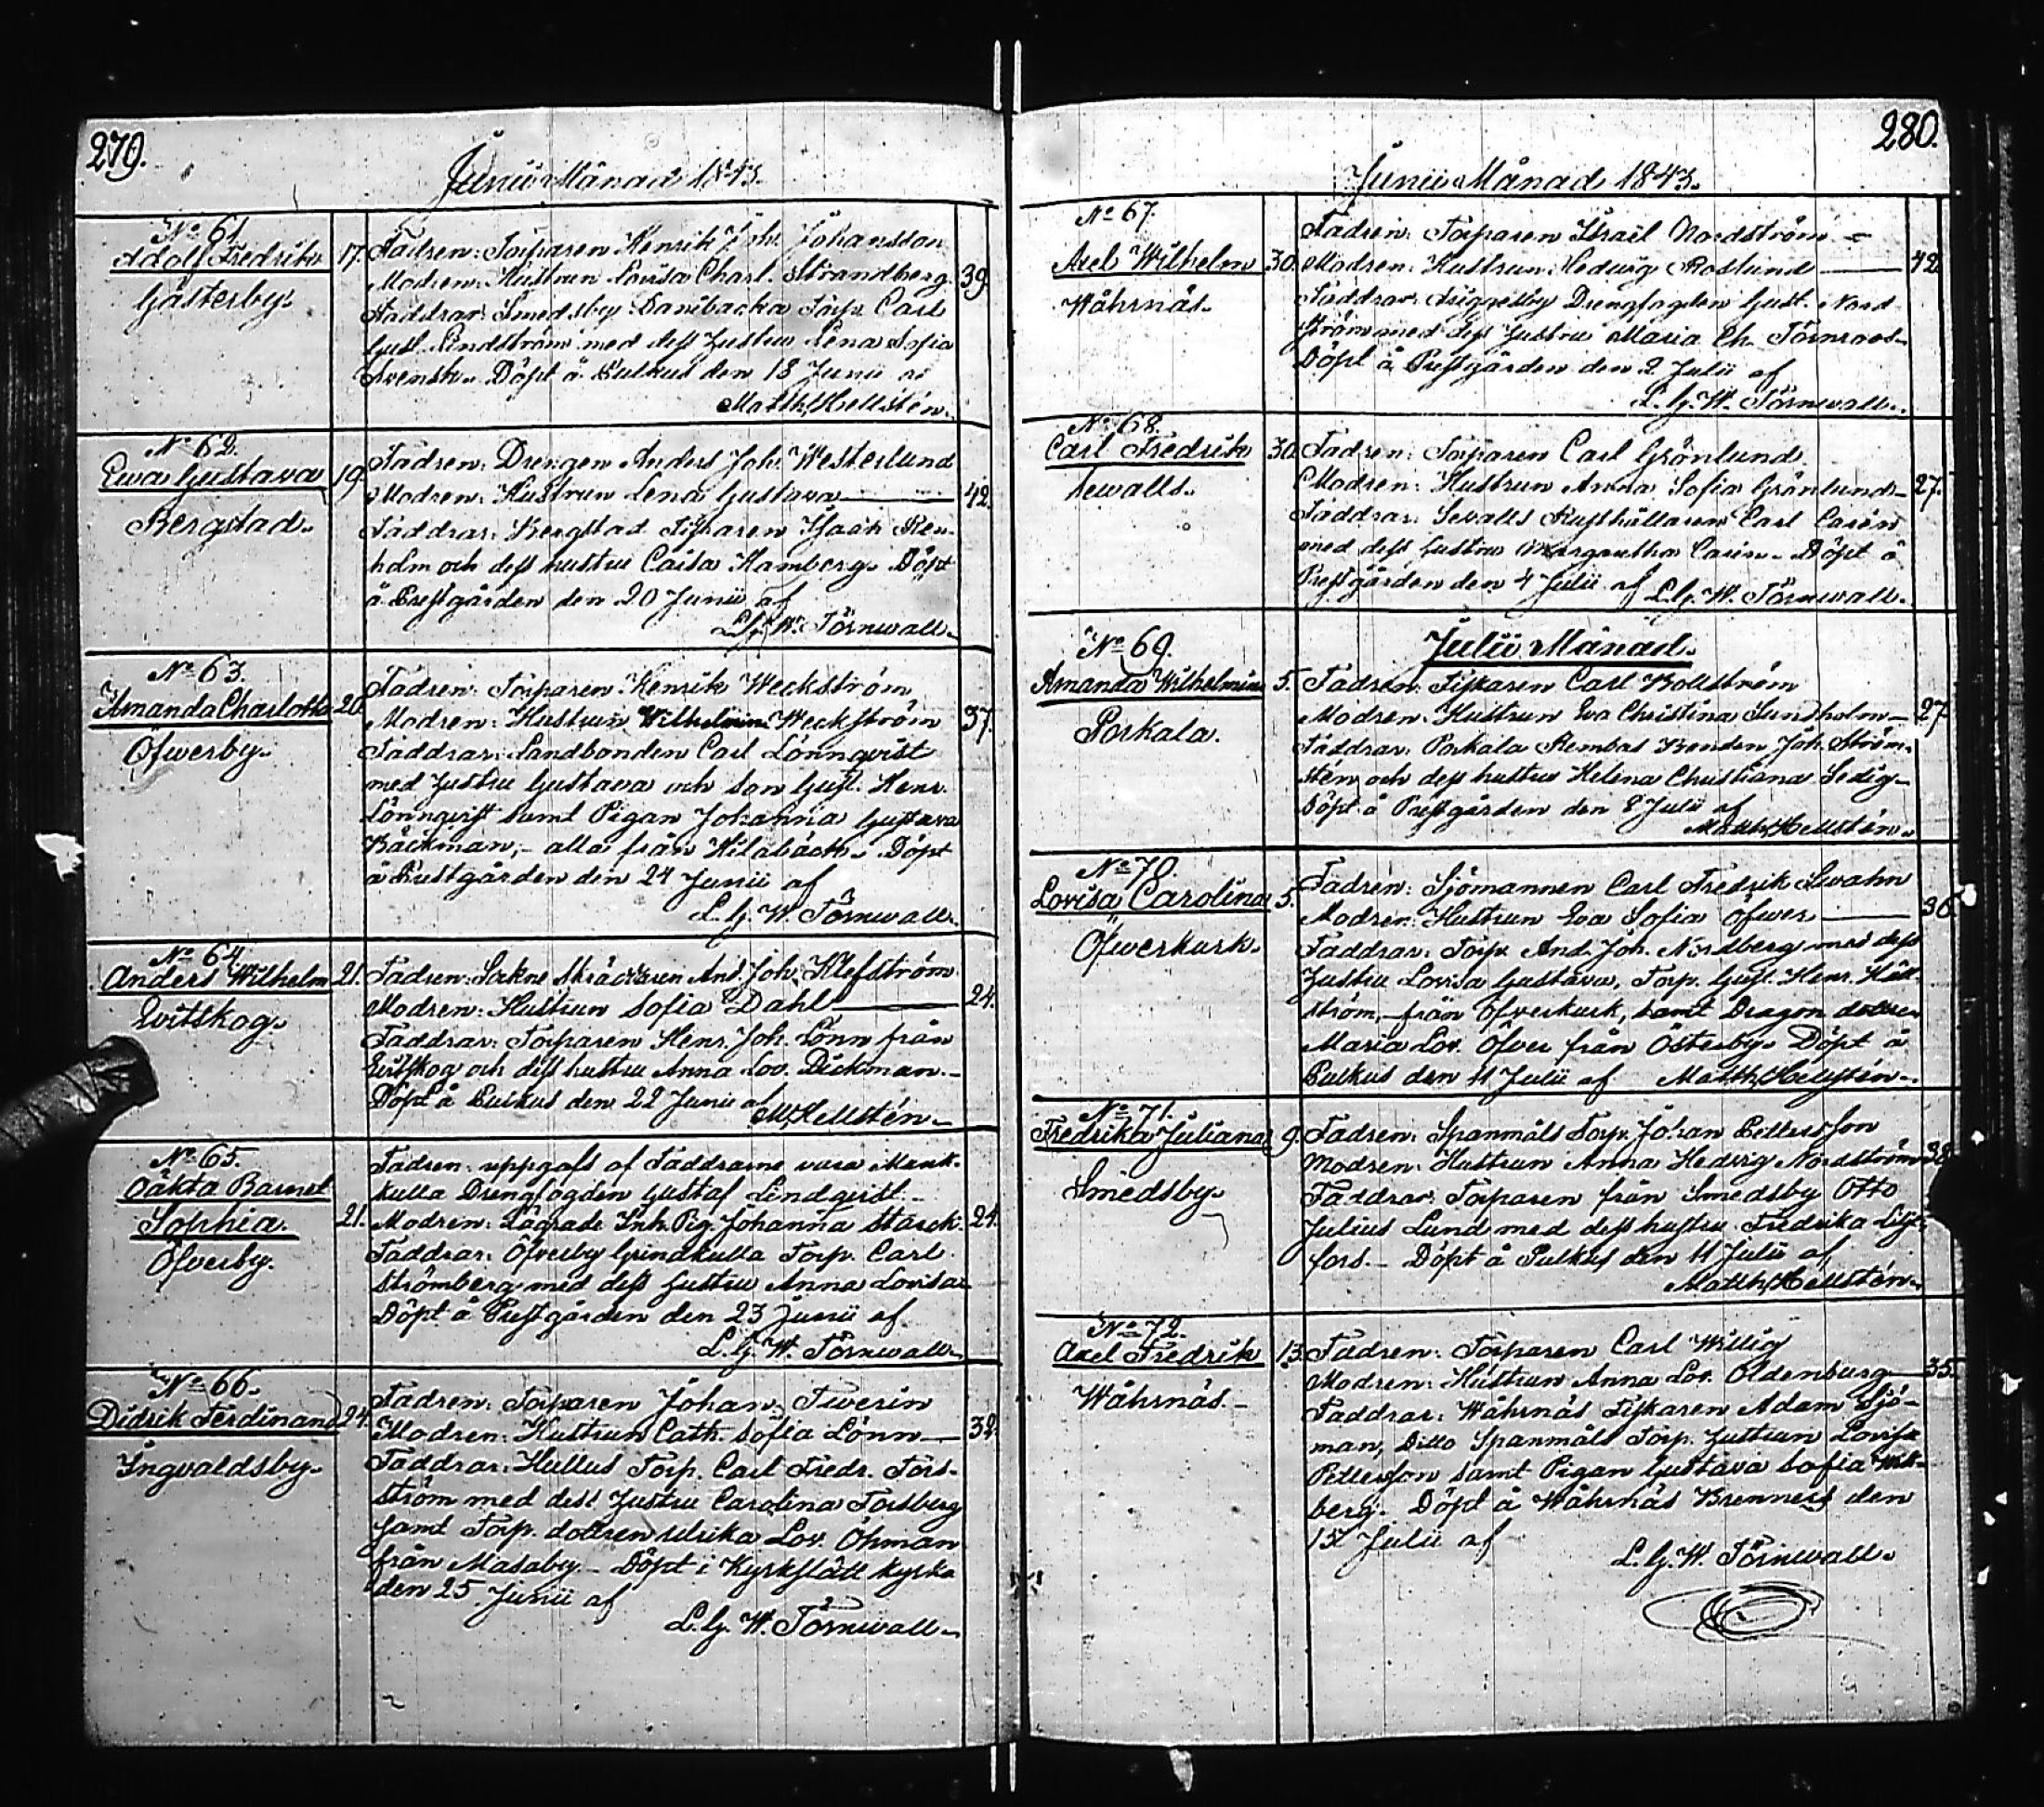 279.
Junii Månad 1843.
No 61
Adolf Fredrik
Gästerby.
17.
Fadren: Torparen Henrik Joh. Johansson
Modren: Hustrun Lovisa Charl. Strandberg
39.
Faddrar: Smedsby Torp. Carl
Gust. Lindström med dess hustru Lena Sofia
Svensk. Döpt å Pulkus den 18 Junii af
Matth. Hellstén.
No 62.
Ewa Gustava
Bergstad.
19.
Fadren: Drengen Anders Joh. Westerlund
Modren: Hustrun Lena Gustava
42.
Faddrar: Bergstad Fiskaren Isaac Ren-
holm och dess hustru Caisa Hamberg. Döpt
å Prestgården den 20 Junii af
L. G. W. Törnwall.
No 63.
Amanda Charlotta
Öfwerby.
20.
Fadren: Torparen Henrik Weckström
Modren: Hustrun Wilhelmina Weckström
37.
Faddrar: Landbonden Carl Lönnqvist
med hustru Gustava och son Gust. Henr.
Lönnqvist samt Pigan Johanna Gustava
Bäckman, - alla från Hilabäck. Döpt
å Prestgården den 24 Junii af
L. G. W. Törnwall.
No 64.
Anders Wilhelm
Evitskog.
21.
Fadren: Sokne Skräddaren And. Joh. Klefström
Modren: Hustrun Sofia Dahl
24.
Faddrar: Torparen Henr. Joh. Lönn från
Evitskog och dess hustru Anna Lov. Dickman.
Döpt å Pulkus den 22 Junii af M. Hellstén.
No 65.
Oäkta Barnet
Sophia.
Öfverby.
21.
Fadren: uppgafs af Faddrarne vara Munk-
kulla Drengfogden Gustaf Lindqvist.
Modren: Lägrade Inh. Pig. Johanna Starck.
24.
Faddrar: Öfverby Grindkulla Torp. Carl
Strömberg med dess hustru Anna Lovisa
Döpt å Prestgården den 23 Junii af
L. G. W. Törnwall.
No 66.
Didrik Ferdinand
Ingvaldsby.
24.
Fadren: Torparen Johan Tverin
Modren: Hustrun Cath. Sofia Lönn
32.
Faddrar: Hullus Torp. Carl Fredr. Fors-
ström med dess hustru Carolina Forsberg
samt Torp. dottren Ulrika Lov. Öhman
från Masaby. Döpt i Kyrkslätt kyrka
den 25 Junii af
L. G. W. Törnwall.
280.
Junii Månad 1843.
No 67.
Axel Wilhelm
Wåhrnäs.
30.
Fadren: Torparen Israel Nordström
Modren: Hustrun Hedwig Roslund
42
Faddrar: Friggesby Drengfogden Gust. Nord
ström med dess hustru Maria Ch. Törnroos.
Döpt å Prestgården den 2 Julii af
L. G. W. Törnwall.
No 68.
Carl Fredrik
Sewalls.
30.
Fadren: Torparen Carl Grönlund
Modren: Hustrun Anna Sofia Grönlund
27.
Faddrar: Sevalls Rusthållaren Carl Carén
med dess hustru Margaretha Carén. Döpt å
Prestgården den 4 Julii af L. G. W. Törnwall.
Julii Månad.
No 69.
Amanda Wilhelmina
Porkala.
5.
Fadren: Fiskaren Carl Bollström
Modren: Hustrun Eva Christina Sundholm
27.
Faddrar: Porkala Rembas Bonden Joh. Ström-
stén och dess hustru Helena Christiana Sedig.
Döpt å Prestgården den 8 Julii af
Matth. Hellstén.
No 70.
Lovisa Carolina
Öfwerkurk.
5.
Fadren: Sjömannen Carl Fredrik Swahn
Modren: Hustrun Eva Sofia Öfwer
36.
Faddrar: Torp. And. Joh. Nordberg med dess
hustru Lovisa Gustava, Torp. Gust. Henr.
ström, från Öfverkurk, samt Dragon dottren
Maria Lov. Öfver från Österby. Döpt å
Pulkus den 11 Julii af Matth. Hellstén.
No 71.
Fredrika Juliana
Smedsby.
9.
Fadren: Spanmåls Torp. Johan Pettersson
Modren: Hustrun Anna Hedvig Nordström
38
Faddrar: Torparen från Smedsby Otto
Julius Lund med dess hustru Fredrika Lilj-
fors. Döpt å Pulkus den 11 Julii af
Matth. Hellstén.
No 72.
Axel Fredrik
Wåhrnäs.
13.
Fadren: Torparen Carl Willig
Modren: Hustrun Anna Lov. Oldenburg
35.
Faddrar: Wåhrnäs Fiskaren Adam Sjö-
man, Ditto Spanmåls Torp. hustrun Lovisa
Pettersson samt Pigan Gustava Sofia Wik-
berg. Döpt å Wåhrnäs Brenners den
15 Julii af
L. G. W. Törnwall.